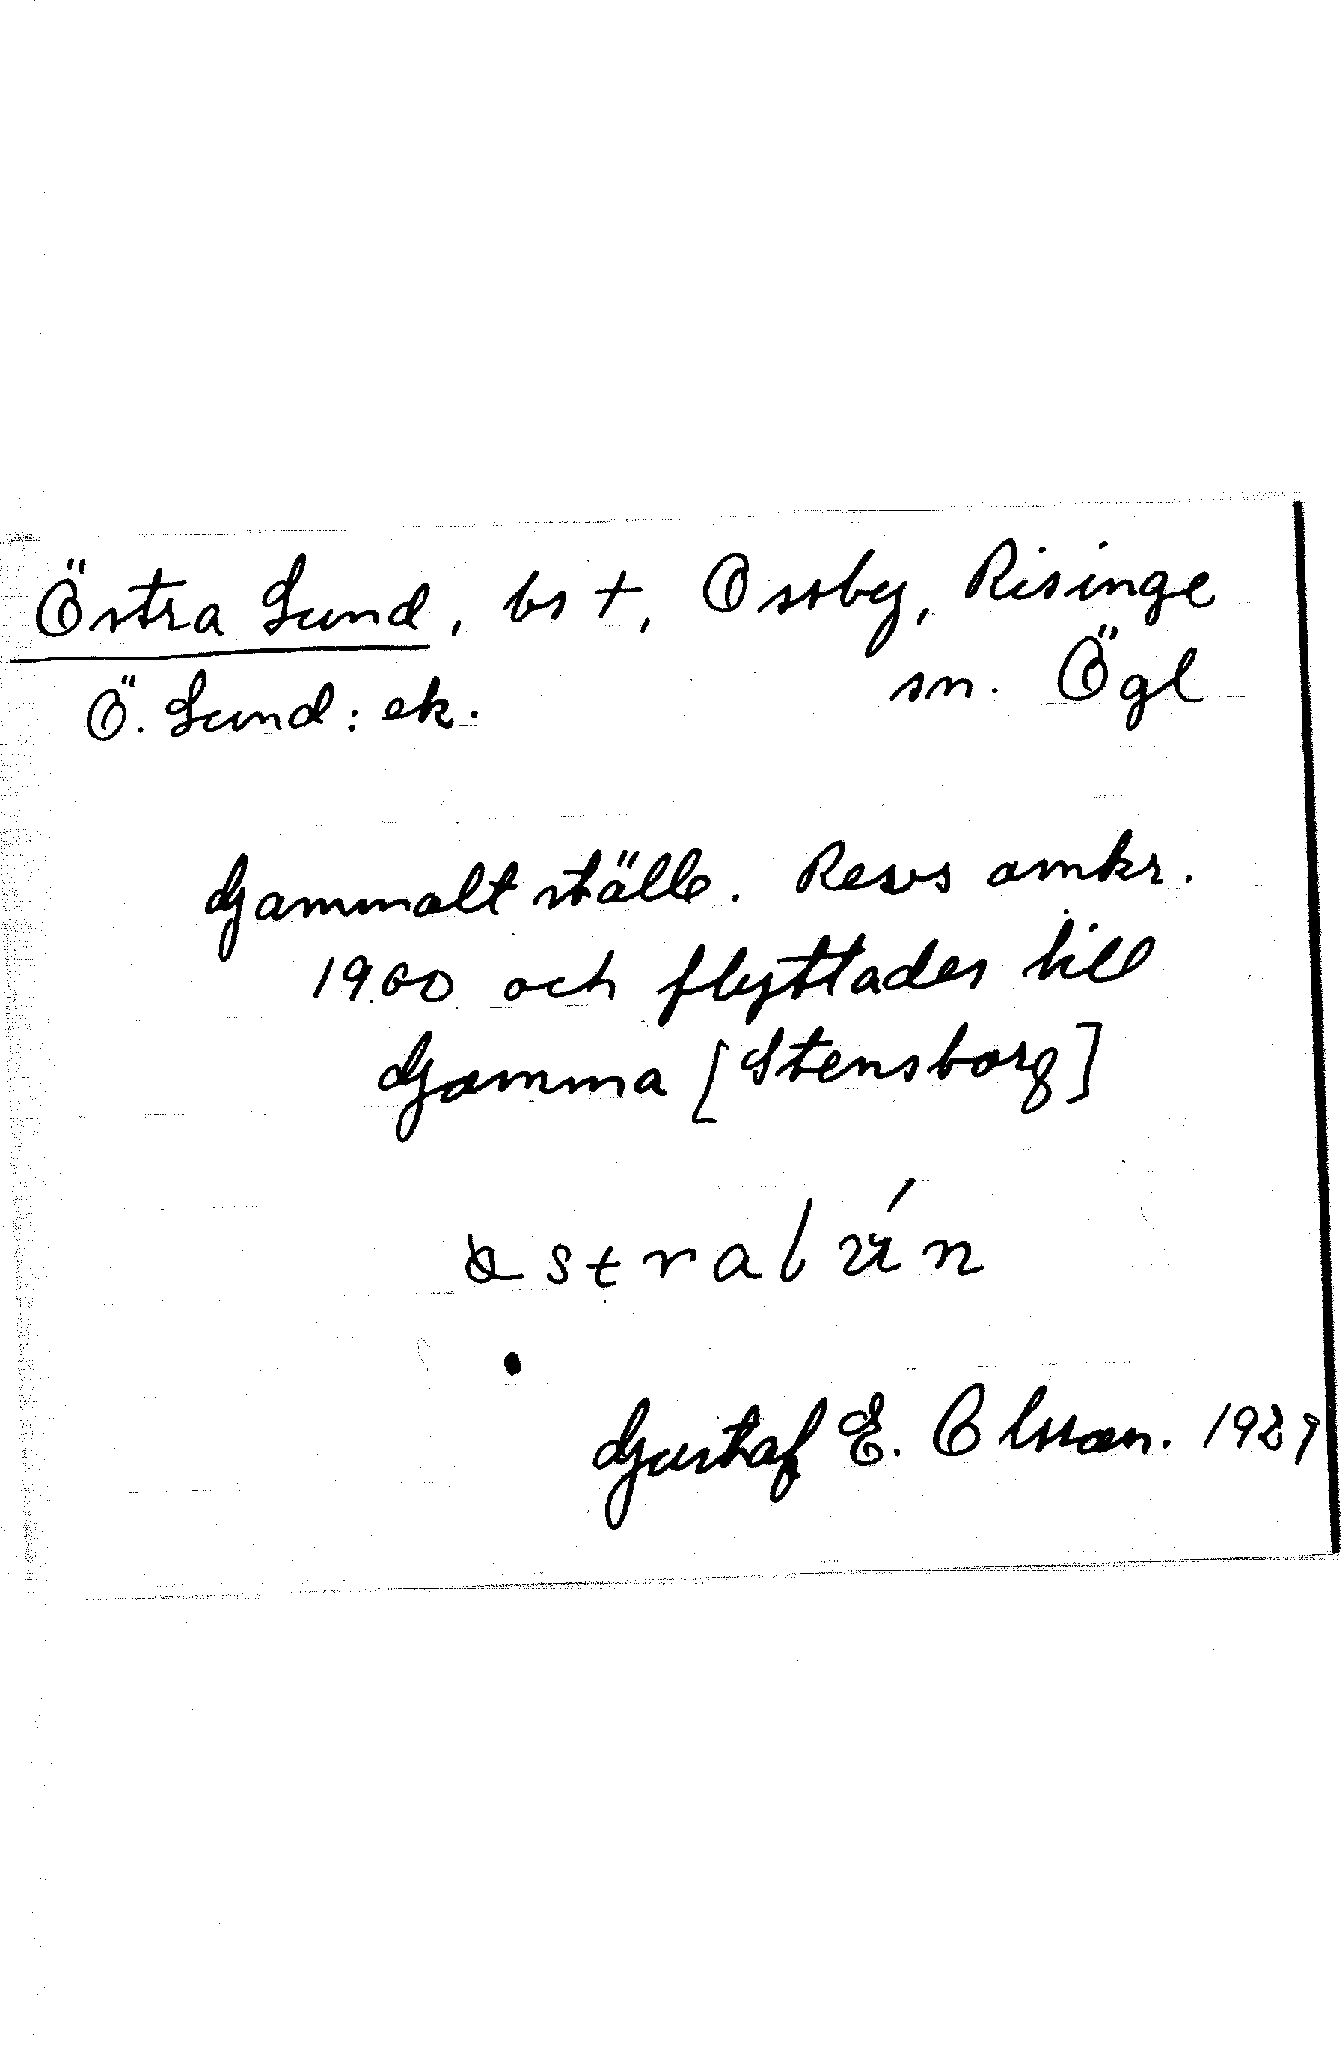 Östra Lund, bs †, Ossby, Risinge
sn. Ögl
Ö. Lund: ek.
Gammalt ställe. Revs omkr.
1900 och flyttades till
Gamma [Stensborg]
Gustaf E. Olsson. 1929